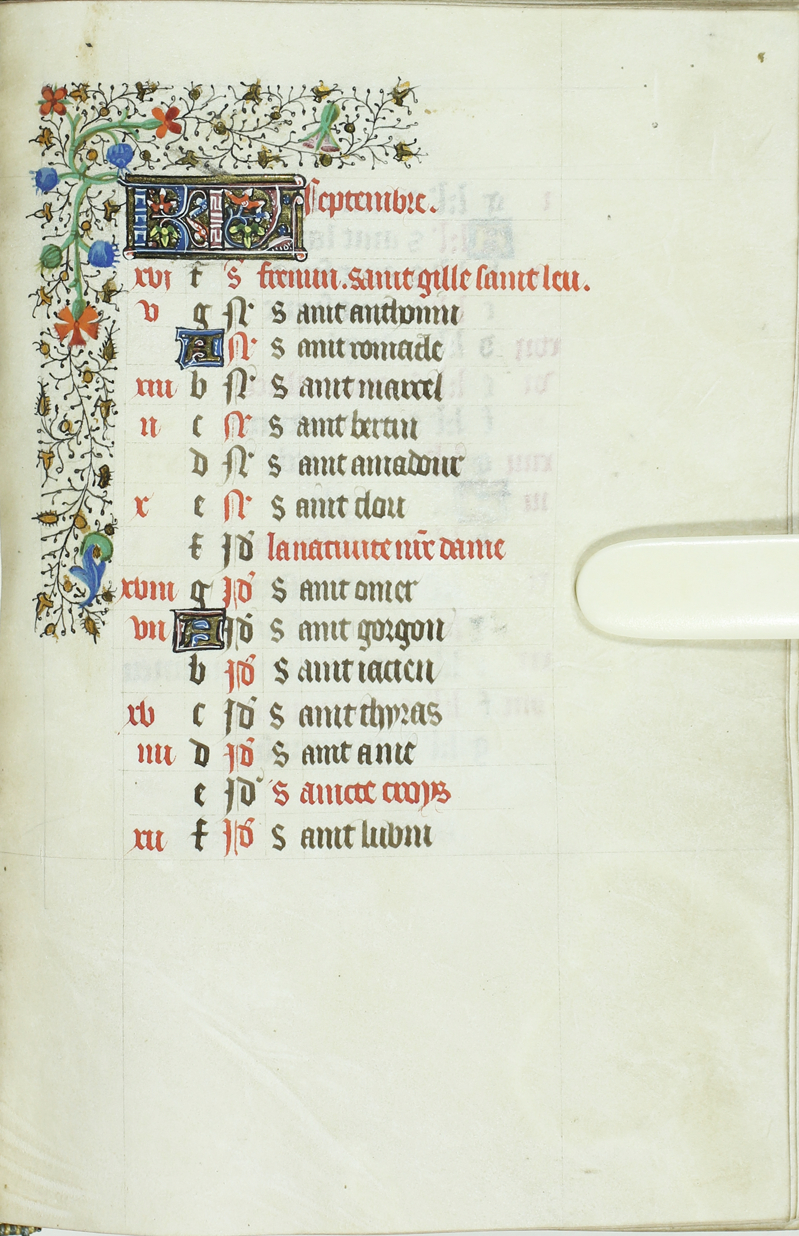 KL septembre.
xvj f S firmin. saint gille saint leu.
v g N S aint anthonin
A N S aint romacle
xiii b N S aint marcel
ii c N S aint bertin
d N S aint amadour
x e N S aint clou
f Id la nativite nre dame
xviii g Id S aint omer
vii A Id S aint gorgon
b Id S aint
xv c Id S aint thyras
iiii d Id S aint ame
e Id S aincte croys
xii f Id S aint lubin